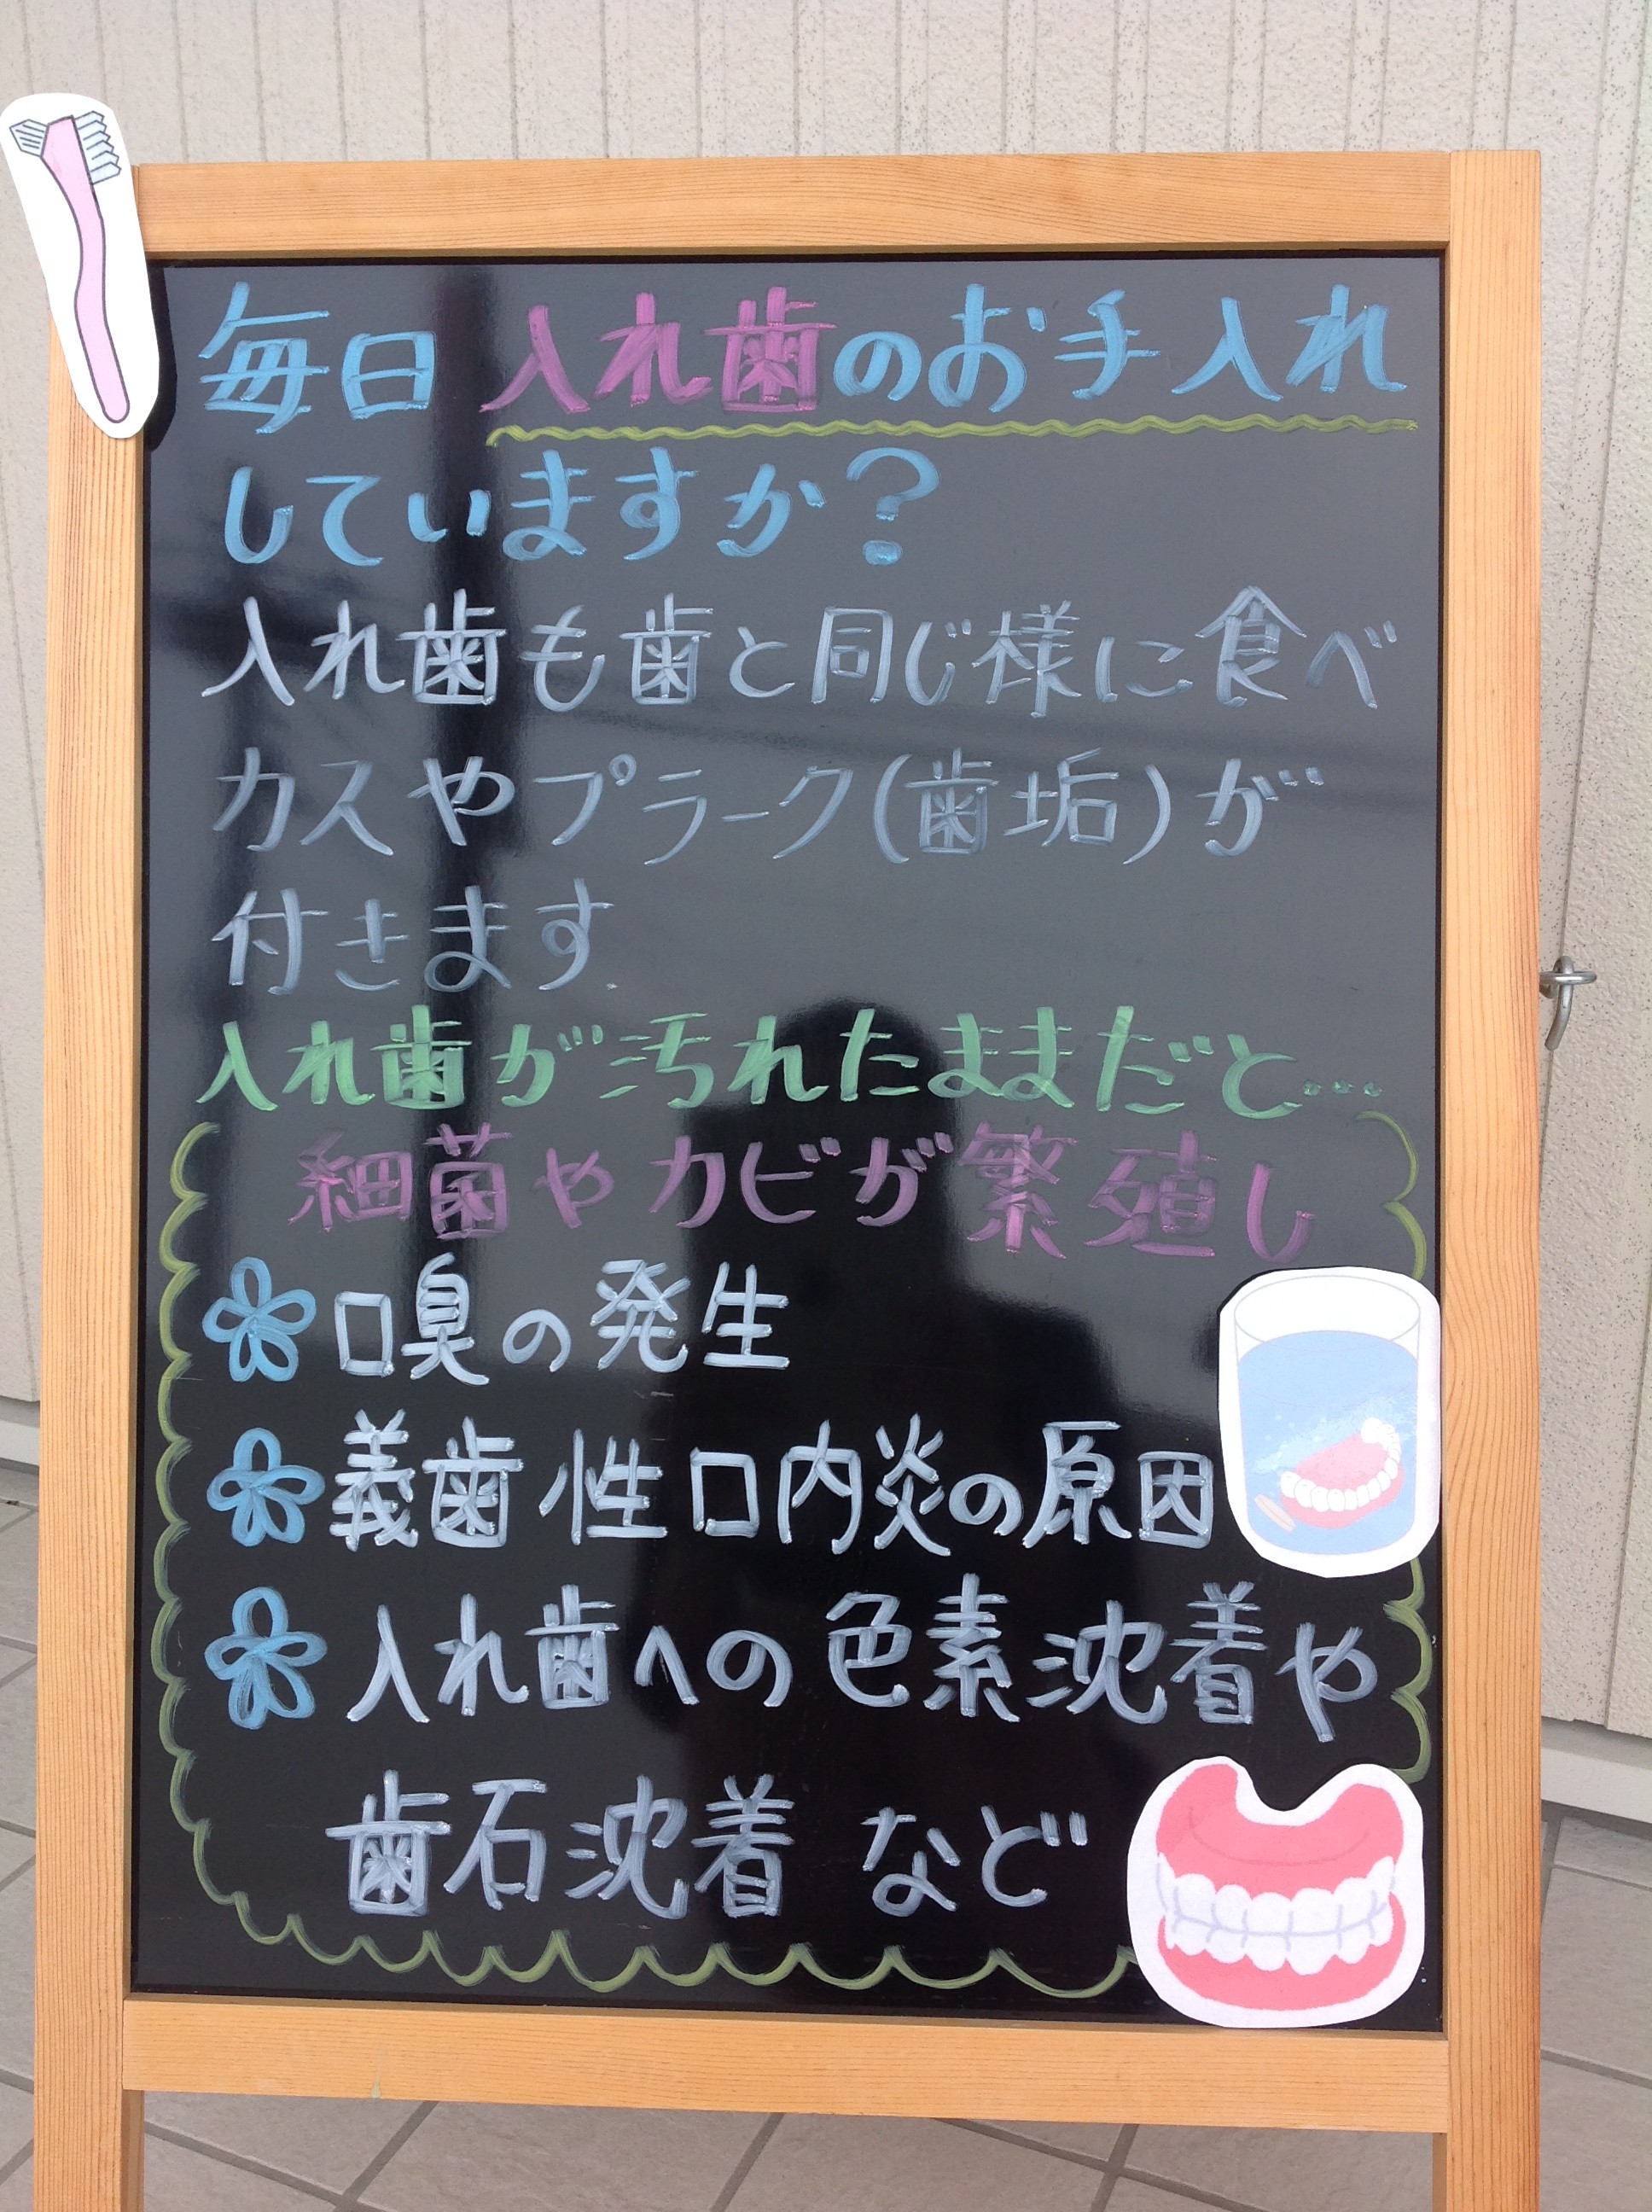 毎日入れ歯のお手入れ
していますか?
入れ歯も歯と同じ様に食べ
カスやプラーク(歯垢)が
付きます.
入れ歯が汚れたままだと…
細菌やカビが繁殖し
口臭の発生
義歯性口内炎の原因
入れ歯への色素沈着や
歯石沈着 など